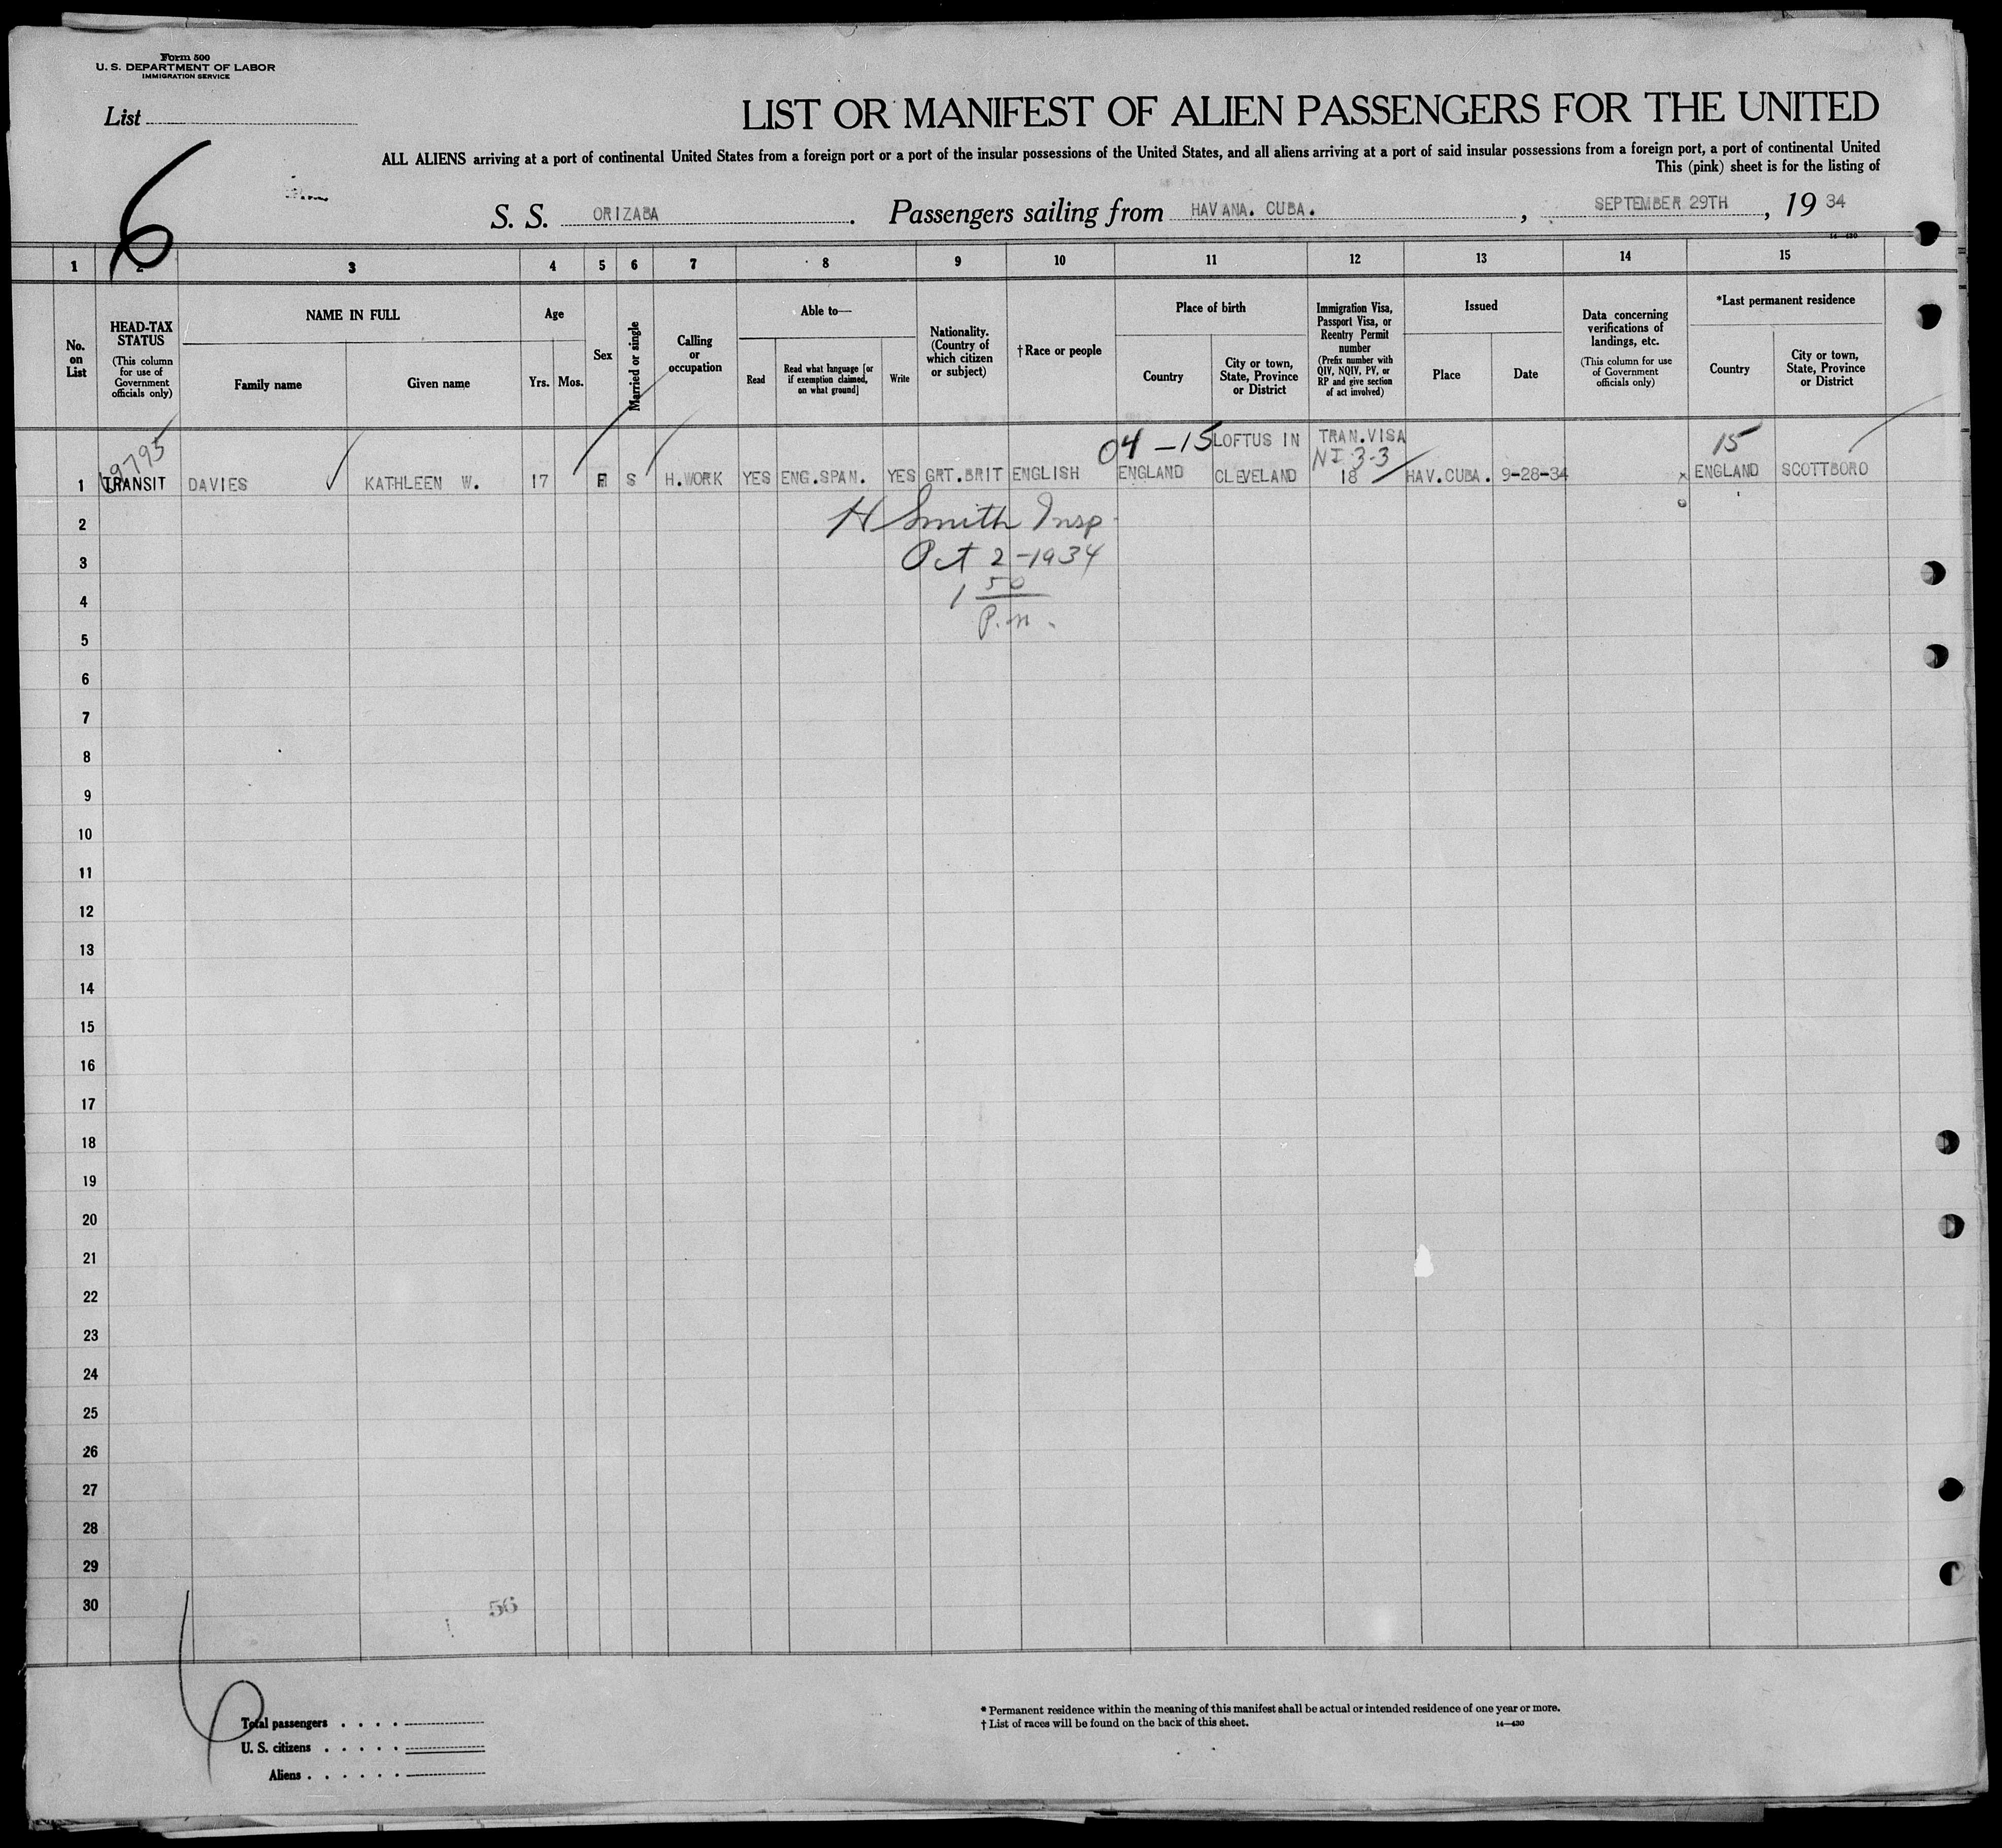 Form 500
U. S. DEPARTMENT OF LABOR
IMMIGRATION SERVICE
List
6
LIST OR MANIFEST OF ALIEN PASSENGERS FOR THE UNITED
ALL ALIENS arriving at a port of continental United States from a foreign port or a port of the insular possessions of the United States, and all aliens arriving at a port of said insular possessions from a foreign port, a port of continental United
This (pink) sheet is for the listing of
S. S. ORIZABA. Passengers sailing from HAVANA. CUBA., SEPTEMBER 29TH, 19 34
14-430
1 2 3 4 5 6 7 8 9 10 11 12 13 14 15
No. on List
HEAD-TAX STATUS
(This column for use of Government officials only)
NAME IN FULL
Family name
Given name
Age
Yrs. Mos.
Sex
Married or single
Calling or occupation
Able to—
Read
Read what language [or if exemption claimed, on what ground]
Write
Nationality. (Country of which citizen or subject)
† Race or people
Place of birth
Country
City or town, State, Province or District
Immigration Visa, Passport Visa, or Reentry Permit number
(Prefix number with QIV, NQIV, PV, or RP and give section of act involved)
Issued
Place
Date
Data concerning verifications of landings, etc.
(This column for use of Government officials only)
*Last permanent residence
Country
City or town, State, Province or District
04-15 LOFTUS IN TRAN.VISA 15
NI 3-3
1 TRANSIT DAVIES KATHLEEN W. 17 F S H.WORK YES ENG.SPAN. YES GRT.BRIT ENGLISH ENGLAND CLEVELAND 18 HAV.CUBA. 9-28-34 x ENGLAND SCOTTBORO
2 H Smith Insp.
3 Oct 2-1934
4 1 50
5 P.m.
6
7
8
9
10
11
12
13
14
15
16
17
18
19
20
21
22
23
24
25
26
27
28
29
30
56
Total passengers . . . .
U. S. citizens . . . . .
Aliens . . . . . .
* Permanent residence within the meaning of this manifest shall be actual or intended residence of one year or more.
† List of races will be found on the back of this sheet.
14—430